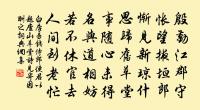 殷勤江郡守
悵望掖垣郎
慚見新瓊什
思歸舊草堂
事隨心未得
名與道相妨
若不休官去
人間到老忙
白居易錢侍郎使君以
題廬山草堂詩見寄因
酬之詞典